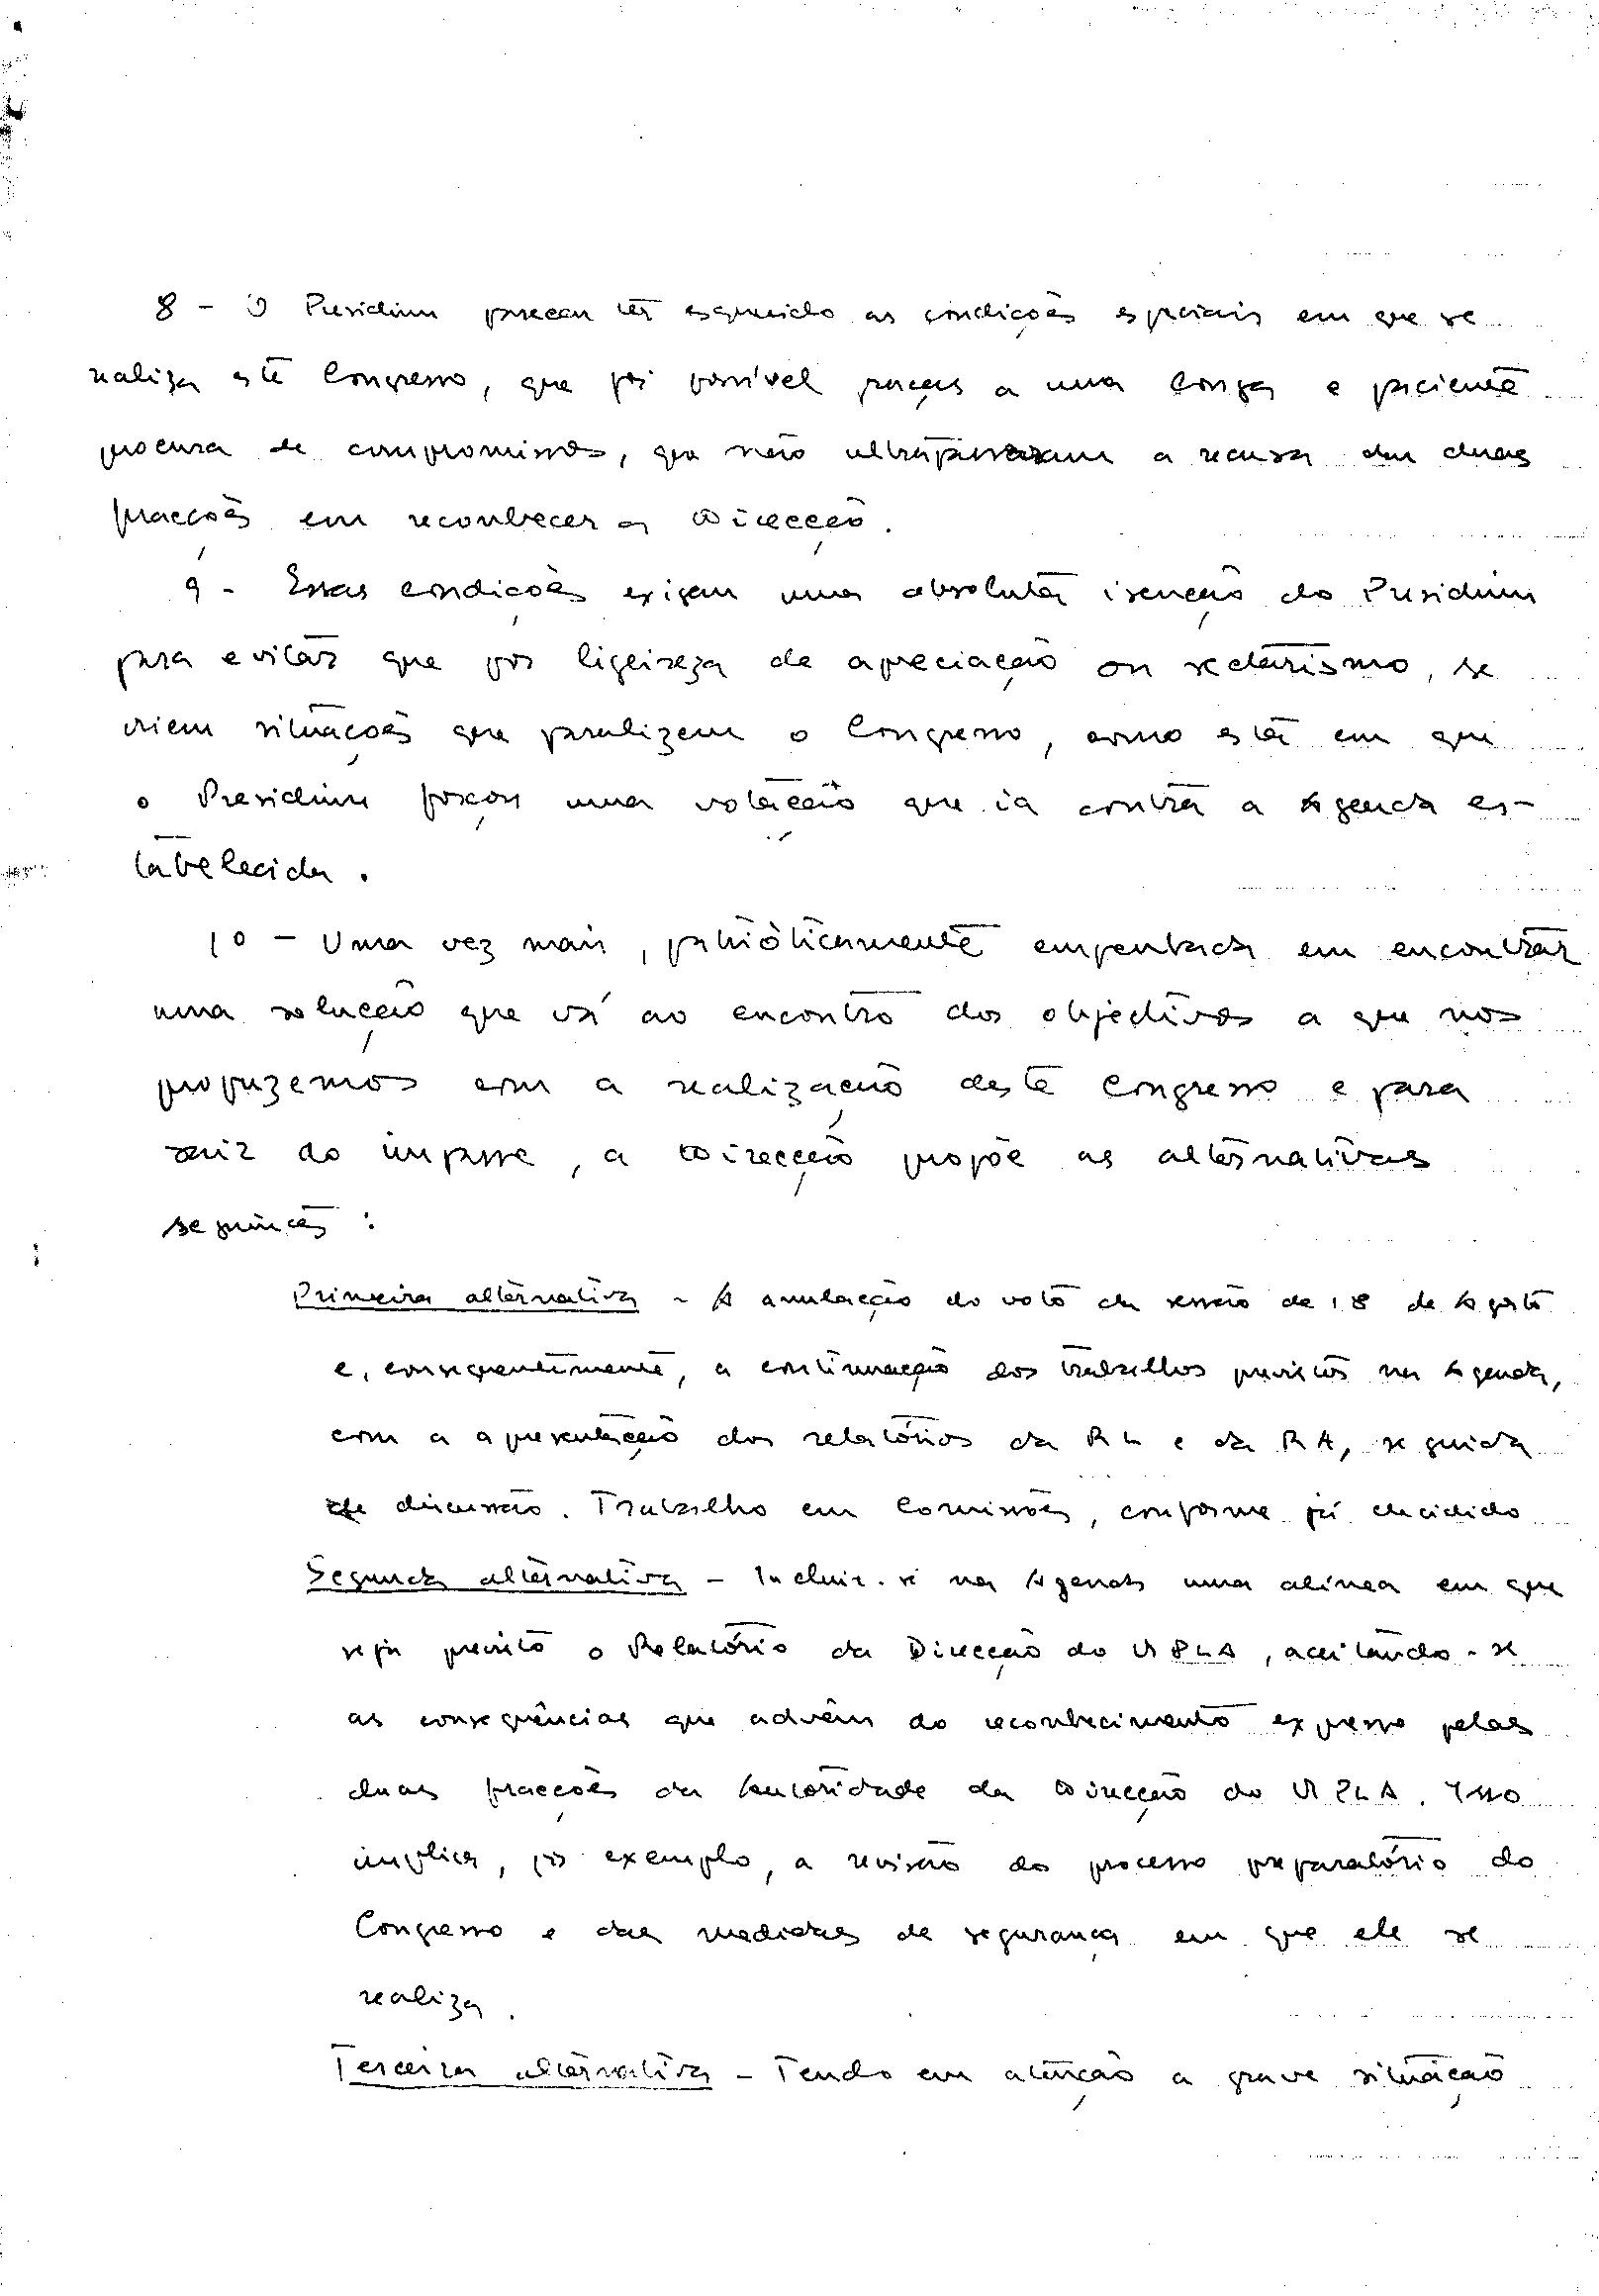 8 - O Presidium pareceu ter esquecido as condições especiais em que se
realiza este Congresso, que foi possível graças a uma longa e paciente
procura de compromissos, que não ultrapassaram a recusa das duas
fracções em reconhecer a Direcção.
9 - Essas condições exigem uma absoluta isenção do Presidium
para evitar que por ligeireza de apreciação ou sectarismo, se
criem situações que paralizem o Congresso, como esta em que
o Presidium forçou uma votação que ia contra a Agenda es-
tabelecida.
10 - Uma vez mais, patrióticamente empenhada em encontrar
uma solução que vá ao encontro dos objectivos a que nos
propuzemos com a realização deste Congresso e para
sair do impasse, a Direcção propõe as alternativas
seguintes :
Primeira alternativa - A anulação do voto da sessão de 18 de Agosto
e, consequentemente, a continuação dos trabalhos previstos na Agenda,
com a apresentação dos relatórios da RL e da RA, seguida
de discussão. Trabalho em Comissões, conforme já decidido
Segunda alternativa - Incluir-se na Agenda uma alínea em que
seja previsto o Relatório da Direcção do MPLA, aceitando-se
as consequências que advêm do reconhecimento expresso pelas
duas fracções da Autoridade da Direcção do MPLA. Isso
implica, por exemplo, a revisão do processo preparatório do
Congresso e das medidas de segurança em que ele se
realiza.
Terceira alternativa - Tendo em atenção a grave situação